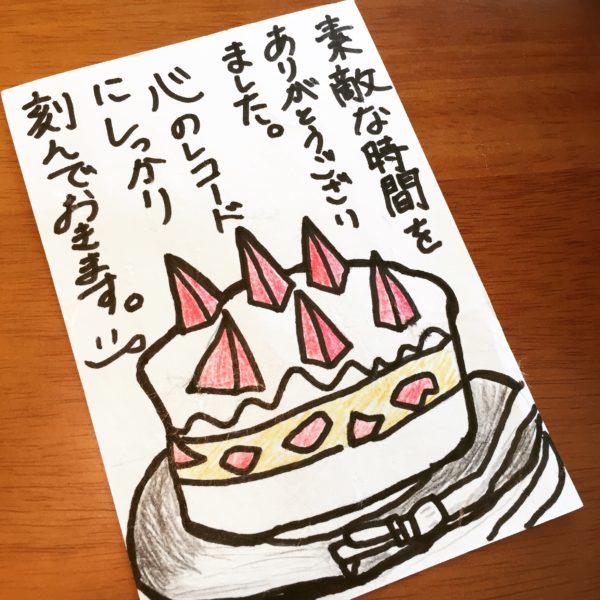 素敵な時間を
ありがとうござり
ました。
心のレコード
にしっかり
刻んでおきます。